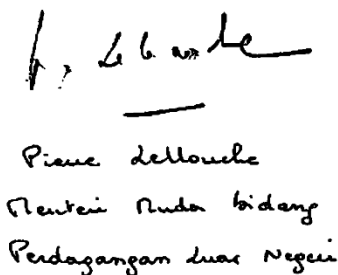 P. Lellouche
Pierre Lellouche
Menteri Muda bidang
Perdagangan Luar Negeri